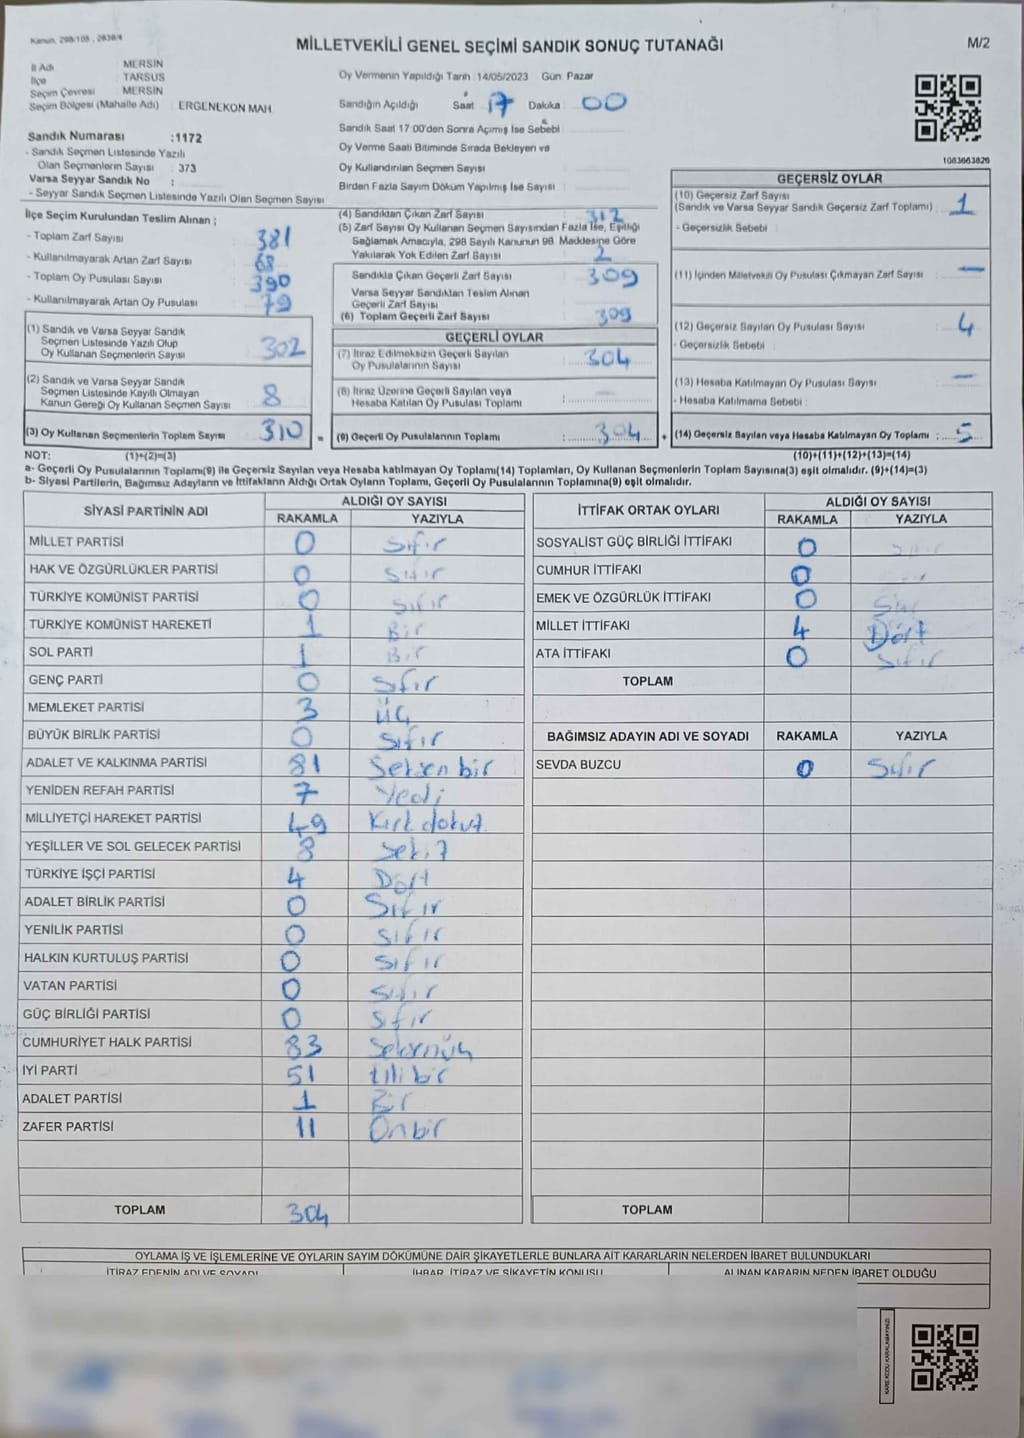 Kanun, 298/105 , 2839/4
MİLLETVEKİLİ GENEL SEÇİMİ SANDIK SONUÇ TUTANAĞI
M/2
İl Adı MERSİN
İlçe TARSUS
Seçim Çevresi MERSİN
Seçim Bölgesi (Mahalle Adı) : ERGENEKON MAH
Sandık Numarası :1172
- Sandık Seçmen Listesinde Yazılı
Olan Seçmenlerin Sayısı : 373
Varsa Seyyar Sandık No :
- Seyyar Sandık Seçmen Listesinde Yazılı Olan Seçmen Sayısı
Oy Vermenin Yapıldığı Tarih : 14/05/2023 Gün: Pazar
Sandığın Açıldığı Saat 17 Dakika 00
Sandık Saat 17:00'den Sonra Açımış İse Sebebi
Oy Verme Saati Bitiminde Sırada Bekleyen ve
Oy Kullandırılan Seçmen Sayısı
Birden Fazla Sayım Döküm Yapılmış İse Sayısı
1083663826
İlçe Seçim Kurulundan Teslim Alınan ;
- Toplam Zarf Sayısı 381
- Kullanılmayarak Artan Zarf Sayısı 68
- Toplam Oy Pusulası Sayısı 390
- Kullanılmayarak Artan Oy Pusulası 79
(1) Sandık ve Varsa Seyyar Sandık
Seçmen Listesinde Yazılı Olup
Oy Kullanan Seçmenlerin Sayısı 302
(2) Sandık ve Varsa Seyyar Sandık
Seçmen Listesinde Kayıtlı Olmayan
Kanun Gereği Oy Kullanan Seçmen Sayısı 8
(3) Oy Kullanan Seçmenlerin Toplam Sayısı 310 =
(4) Sandıktan Çıkan Zarf Sayısı 312
(5) Zarf Sayısı Oy Kullanan Seçmen Sayısından Fazla İse, Eşitliği
Sağlamak Amacıyla, 298 Sayılı Kanunun 98. Maddesine Göre
Yakılarak Yok Edilen Zarf Sayısı 2
Sandıkta Çıkan Geçerli Zarf Sayısı 309
Varsa Seyyar Sandıktan Teslim Alınan
Geçerli Zarf Sayısı
(6) Toplam Geçerli Zarf Sayısı 309
GEÇERLİ OYLAR
(7) İtiraz Edilmeksizin Geçerli Sayılan
Oy Pusulalarının Sayısı 304
(8) İtiraz Üzerine Geçerli Sayılan veya
Hesaba Katılan Oy Pusulası Toplamı : —
(9) Geçerli Oy Pusulalarının Toplamı : 304 +
GEÇERSİZ OYLAR
(10) Geçersiz Zarf Sayısı
(Sandık ve Varsa Seyyar Sandık Geçersiz Zarf Toplamı) : 1
- Geçersizlik Sebebi :
(11) İçinden Milletvekili Oy Pusulası Çıkmayan Zarf Sayısı : —
(12) Geçersiz Sayılan Oy Pusulası Sayısı : 4
- Geçersizlik Sebebi :
(13) Hesaba Katılmayan Oy Pusula Sayısı : —
- Hesaba Katılmama Sebebi :
(14) Geçersiz Sayılan veya Hesaba Katılmayan Oy Toplamı : 5
NOT: (1)+(2)=(3) (10)+(11)+(12)+(13)=(14)
a- Geçerli Oy Pusulalarının Toplam(9) ile Geçersiz Sayılan veya Hesaba katılmayan Oy Toplamı(14) Toplamları, Oy Kullanan Seçmenlerin Toplam Sayısına(3) eşit olmalıdır. (9)+(14)=(3)
b- Siyasi Partilerin, Bağımsız Adayların ve İttifakların Aldığı Ortak Oyların Toplamı, Geçerli Oy Pusulalarının Toplamına(9) eşit olmalıdır.
SİYASİ PARTİNİN ADI ALDIĞI OY SAYISI
RAKAMLA YAZIYLA
MİLLET PARTİSİ 0 Sıfır
HAK VE ÖZGÜRLÜKLER PARTİSİ 0 Sıfır
TÜRKİYE KOMÜNİST PARTİSİ 0 Sıfır
TÜRKİYE KOMÜNİST HAREKETİ 1 Bir
SOL PARTİ 1 Bir
GENÇ PARTİ 0 Sıfır
MEMLEKET PARTİSİ 3 üç
BÜYÜK BİRLİK PARTİSİ 0 Sıfır
ADALET VE KALKINMA PARTİSİ 81 Seksen bir
YENİDEN REFAH PARTİSİ 7 Yedi
MİLLİYETÇİ HAREKET PARTİSİ 49 Kırk dokuz
YEŞİLLER VE SOL GELECEK PARTİSİ 8 Sekiz
TÜRKİYE İŞÇİ PARTİSİ 4 Dört
ADALET BİRLİK PARTİSİ 0 Sıfır
YENİLİK PARTİSİ 0 Sıfır
HALKIN KURTULUŞ PARTİSİ 0 Sıfır
VATAN PARTİSİ 0 Sıfır
GÜÇ BİRLİĞİ PARTİSİ 0 Sıfır
CUMHURİYET HALK PARTİSİ 83 Seksenüç
İYİ PARTİ 51 Elli bir
ADALET PARTİSİ 1 Bir
ZAFER PARTİSİ 11 Onbir
TOPLAM 304
İTTİFAK ORTAK OYLARI ALDIĞI OY SAYISI
RAKAMLA YAZIYLA
SOSYALİST GÜÇ BİRLİĞİ İTTİFAKI 0 Sıfır
CUMHUR İTTİFAKI 0
EMEK VE ÖZGÜRLÜK İTTİFAKI 0 Sıfır
MİLLET İTTİFAKI 4 Dört
ATA İTTİFAKI 0 Sıfır
TOPLAM
BAĞIMSIZ ADAYIN ADI VE SOYADI RAKAMLA YAZIYLA
SEVDA BUZCU 0 Sıfır
TOPLAM
OYLAMA İŞ VE İŞLEMLERİNE VE OYLARIN SAYIM DÖKÜMÜNE DAİR ŞİKAYETLERLE BUNLARA AİT KARARLARIN NELERDEN İBARET BULUNDUKLARI
İTİRAZ EDENİN ADI VE SOYADI İHBAR, İTİRAZ VE ŞİKAYETİN KONUSU ALINAN KARARIN NEDEN İBARET OLDUĞU
KARE KODU KARALAMAYINIZ!